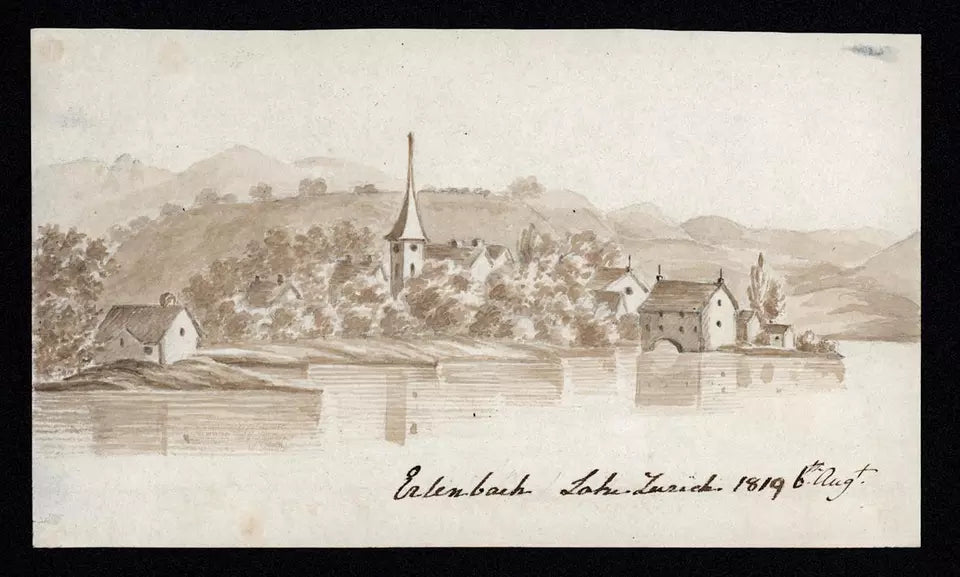 Erlenbach Lake Zurich 1819 6th Augt.